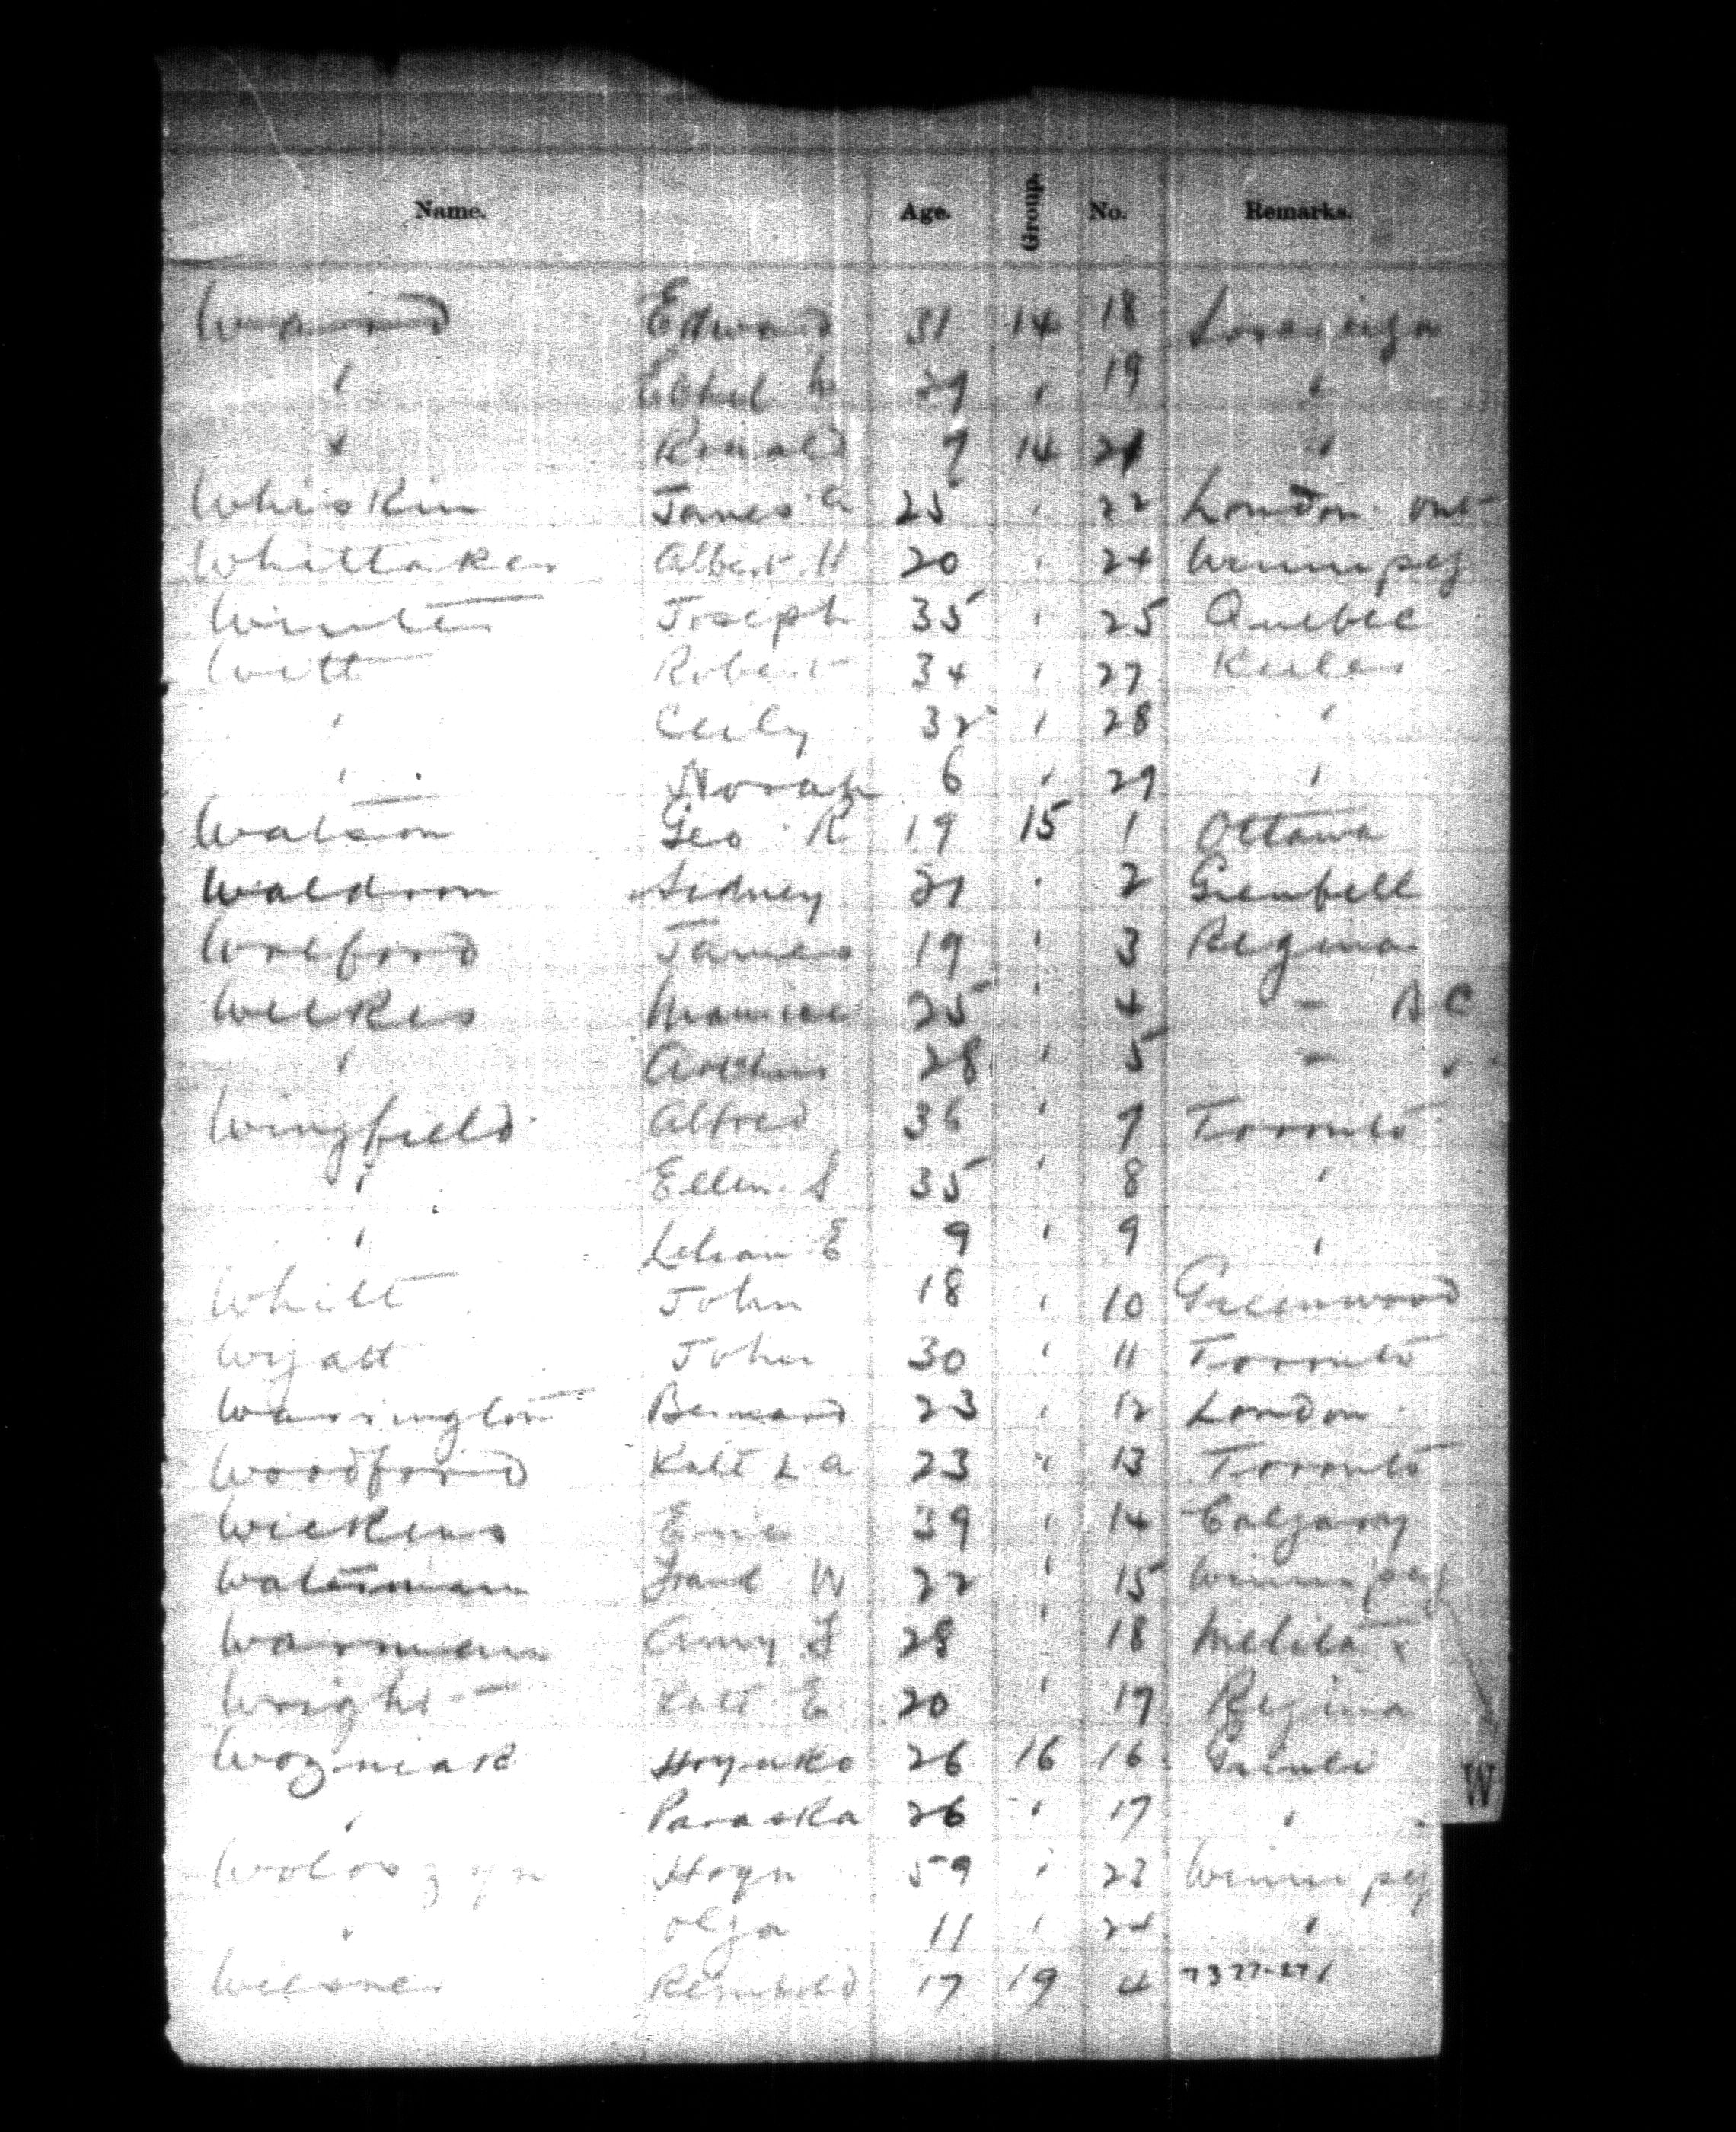 Name. Age. Group. No. Remarks.
Edward 31 14 18
" Ethel W 29 " 19 "
" Ronald 7 14 21 "
Whiskin James A 25 " 22 London Ont
Whittaker Albert H 20 " 24 Winnipeg
Winter Joseph 35 " 25 Quebec
Witt Robert 34 " 27
" Cecily 32 " 28 "
" Norah 6 " 29 "
Watson Geo R 19 15 1 Ottawa
Waldron Sidney 21 " 2 Grenfell
Wolford James 19 " 3 Regina
Weekes Maurice 25 " 4 - B C
" Arthur 28 " 5 - "
Wingfield Alfred 36 " 7 Toronto
" Ellen S 35 " 8 "
" Lilian E 9 " 9 "
White John 18 " 10 Greenwood
Wyatt John 30 " 11 Toronto
Warrington Bernard 23 " 12 London
Woodford Kate L A 23 " 13 Toronto
Wickens 39 " 14 Calgary
Waterman Frank W 22 " 15 Winnipeg
Warman Amy F 28 " 18 Melita
Wright Kate E 20 " 19 Regina
Wozniak Hrynko 26 16 16
" Paraska 26 " 17 "
Woloszyn Hryn 59 " 23 Winnipeg
" Olga 11 " 24 "
Reinhold 17 19 4
W